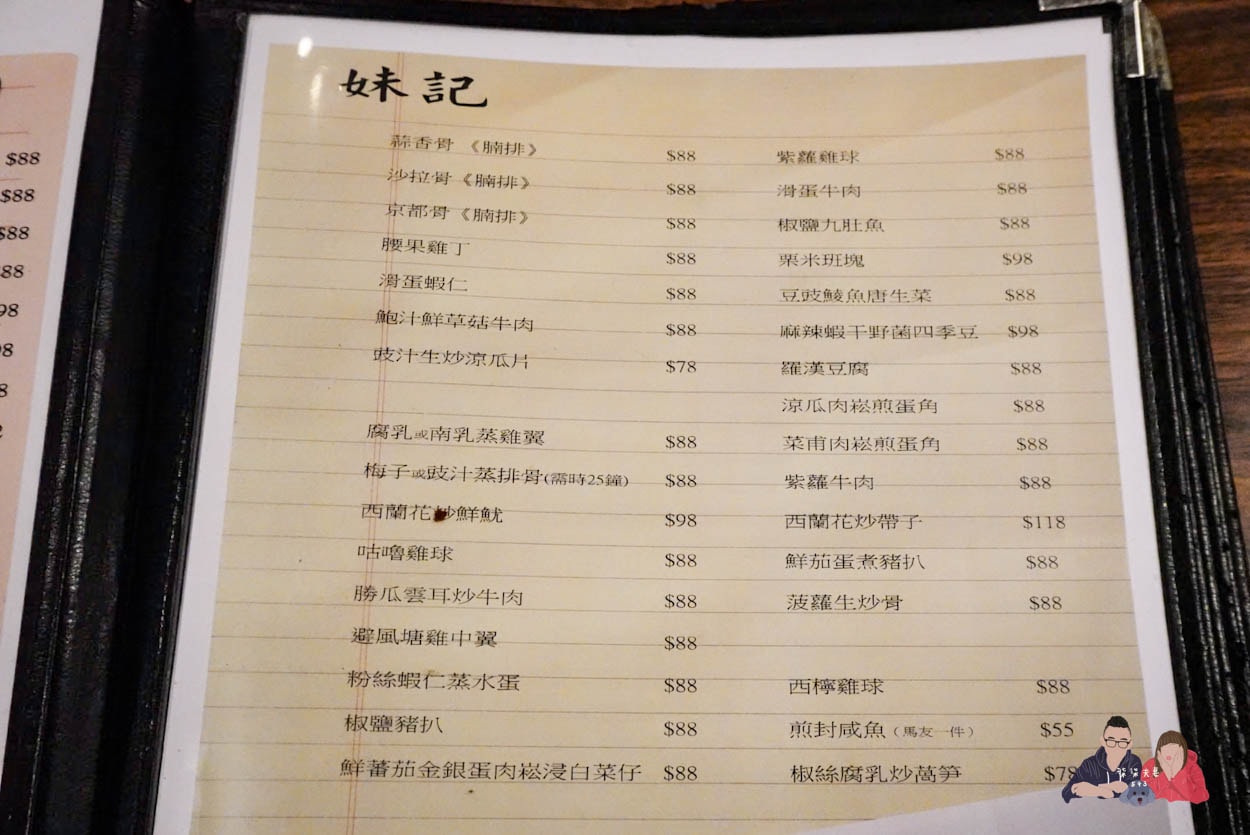 妹記
蒜香骨 《腩排》 $88
沙拉骨《腩排》 $88
京都骨《腩排》 $88
腰果雞丁 $88
滑蛋蝦仁 $88
鮑汁鮮草菇牛肉 $88
豉汁生炒涼瓜片 $78
腐乳或南乳蒸雞翼 $88
梅子或豉汁蒸排骨(需時25鐘) $88
西蘭花炒鮮魷 $98
咕嚕雞球 $88
勝瓜雲耳炒牛肉 $88
避風塘雞中翼 $88
粉絲蝦仁蒸水蛋 $88
椒鹽豬扒 $88
鮮蕃茄金銀蛋肉崧浸白菜仔 $88
紫蘿雞球 $88
滑蛋牛肉 $88
椒鹽九肚魚 $88
粟米班塊 $98
豆豉鯪魚唐生菜 $88
麻辣蝦干野菌四季豆 $98
羅漢豆腐 $88
涼瓜肉崧煎蛋角 $88
菜甫肉崧煎蛋角 $88
紫蘿牛肉 $88
西蘭花炒帶子 $118
鮮茄蛋煮豬扒 $88
菠蘿生炒骨 $88
西檸雞球 $88
煎封咸魚（馬友一件） $55
椒絲腐乳炒萵笋 $78
$88
$88
$88